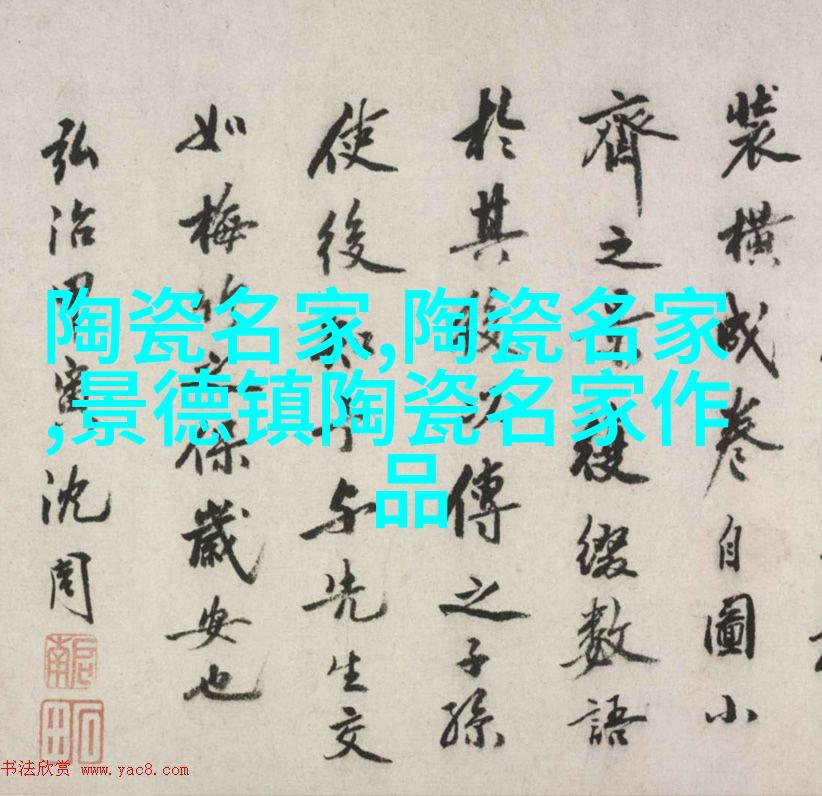 裝橫成卷自圖小
齊之景綴數語
於其後以傳之子孫
使後知予与先生交
如梅竹之保歲安也
弘治甲寅沈周
陶瓷名家,陶瓷名家
,景德镇陶瓷名家作
品
书法欣赏 www.yac8.com